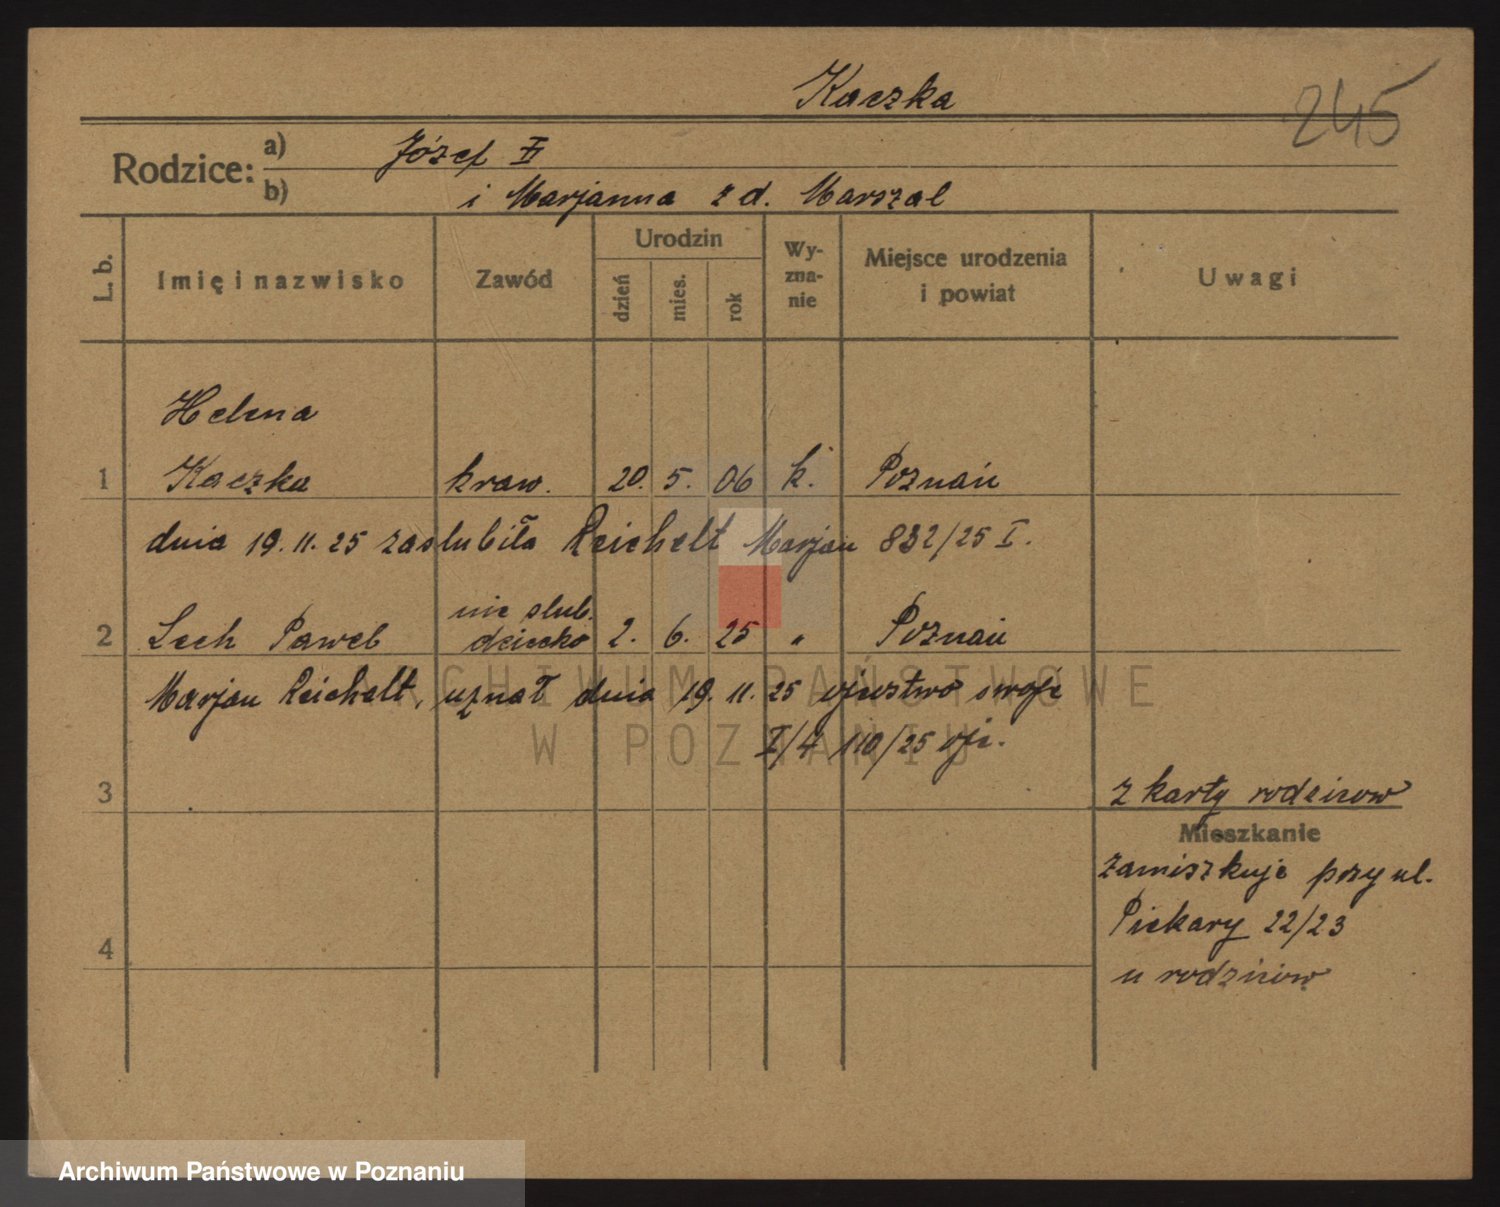 Kaczka
245
Rodzice: a) Józef II
b) i Marjanna z d. Marszal
L. b. Imię i nazwisko Zawód Urodzin dzień mies. rok Wy-zna-nie Miejsce urodzenia i powiat Uwagi
Helena
1 Kaczka kraw. 20. 5. 06 k. Poznań
dnia 19. 11. 25 zaslubiła Reichelt Marjan 832/25 I.
nie slub.
2 Lech Paweł dziecko 2. 6. 25 " Poznań
Marjan Reichelt, uznał dnia 19. 11. 25 ojcostwo swoje
I/4 110/25 oji.
3 z karty rodziców
Mieszkanie
zamiszkuje przy ul.
Piekary 22/23
4
u rodziców
ARCHIWUM PAŃSTWOWE
W POZNANIU
Archiwum Państwowe w Poznaniu